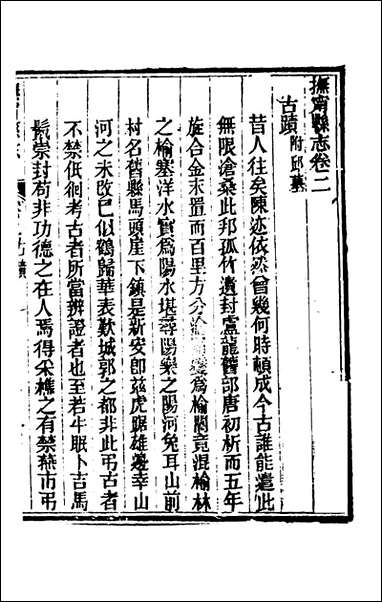 撫甯縣志卷二
古蹟 附邱墓
昔人往矣陳迹依然曾幾何時頓成今古誰能遣此
無限滄桑此邦孤竹瀆封盧龍舊郡唐初析而五年
旋合金末置而百里方分渝關變爲榆關竟混榆林
之榆塞洋水實爲陽水堪尋陽樂之陽河兔耳山前
村名舊縣馬頭崖下鎮是新安卽茲虎踞雄邊幸山
河之未改已似鶴歸華表歎城郭之都非此弔古者
不禁低徊考古者所當辨證者也至若牛眠卜吉馬
鬛崇封苟非功德之在人焉得采樵之有禁燕市弔